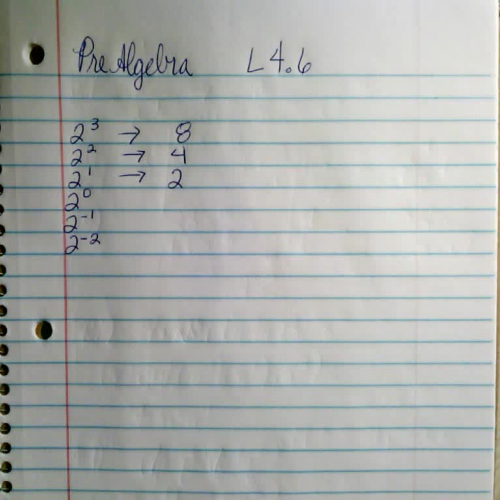 Pre Algebra L 4.6
2³ → 8
2² → 4
2¹ → 2
2⁰
2⁻¹
2⁻²